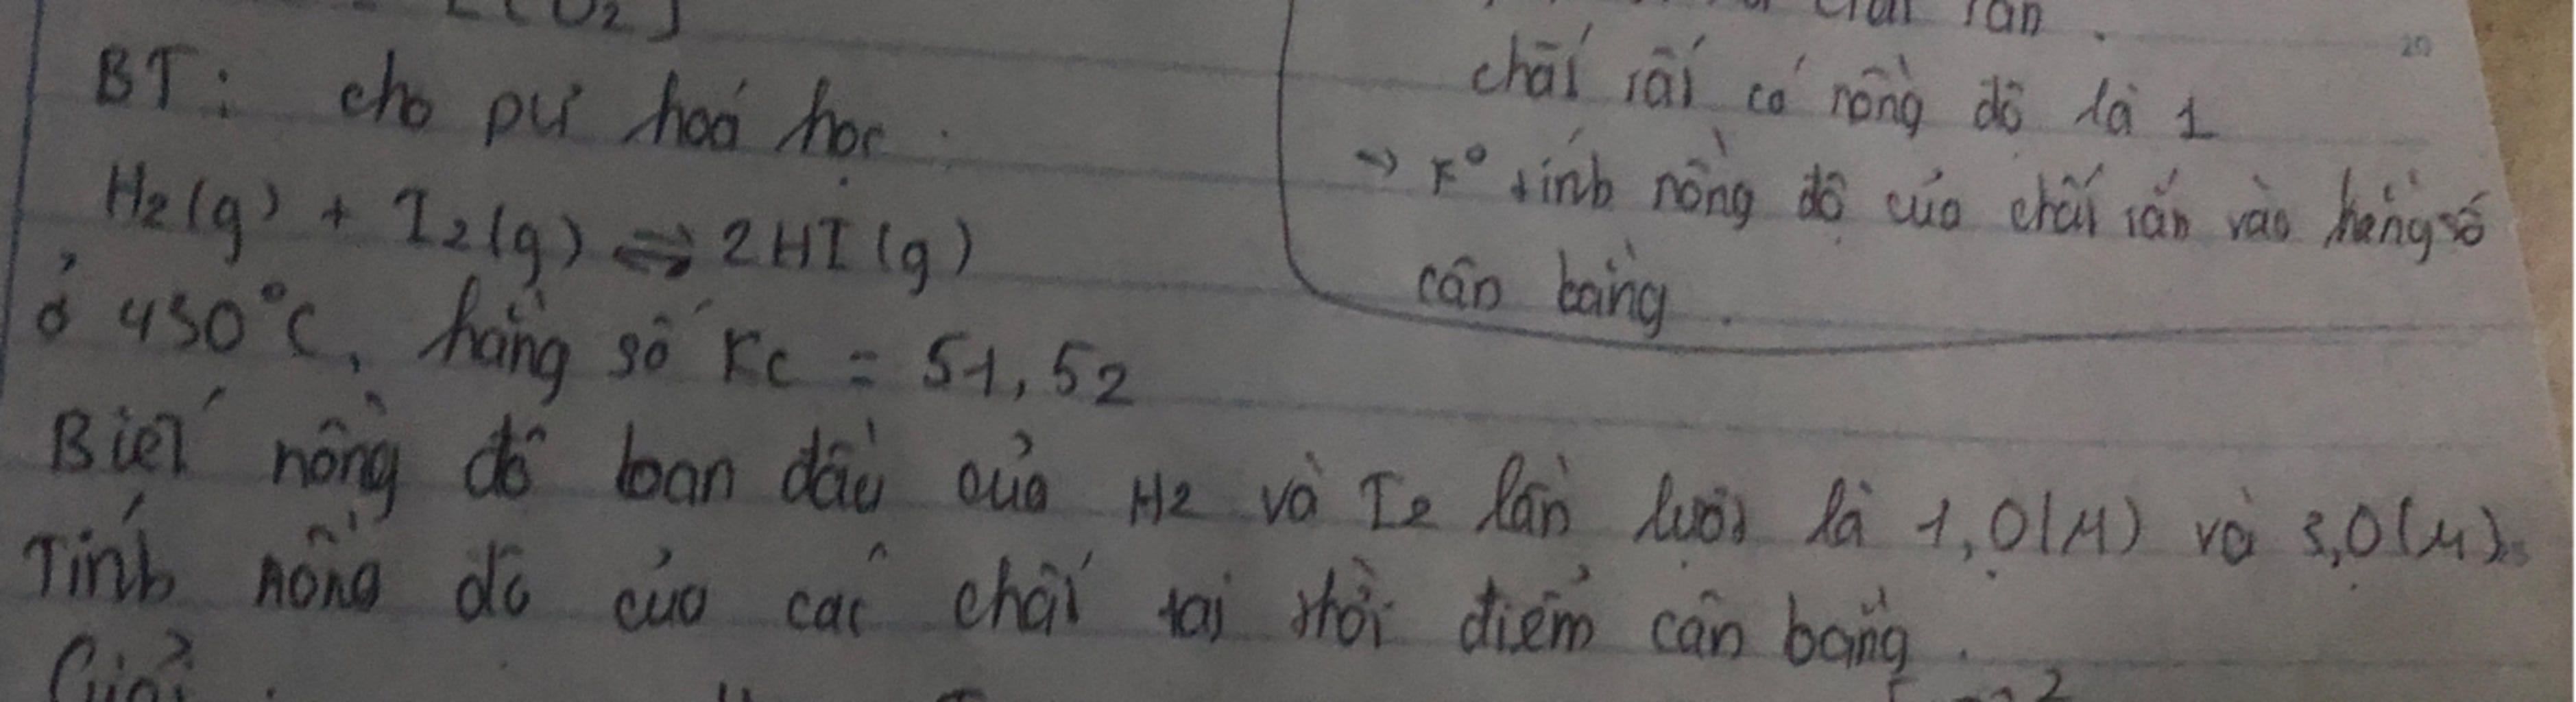 BT: cho pư hoá học.
H2(g) + I2(g) ⇌ 2HI(g)
ở 430°C, hằng số Kc = 51,52
Biết nồng độ ban đầu của H2 và I2 lần lượt là 1,0(M) và 3,0(M).
Tính nồng độ của các chất tại thời điểm cân bằng.
Giải:
chất rắn.
chất rắn có nồng độ là 1
→ K° tính nồng độ của chất rắn vào hằng số
cân bằng.
20